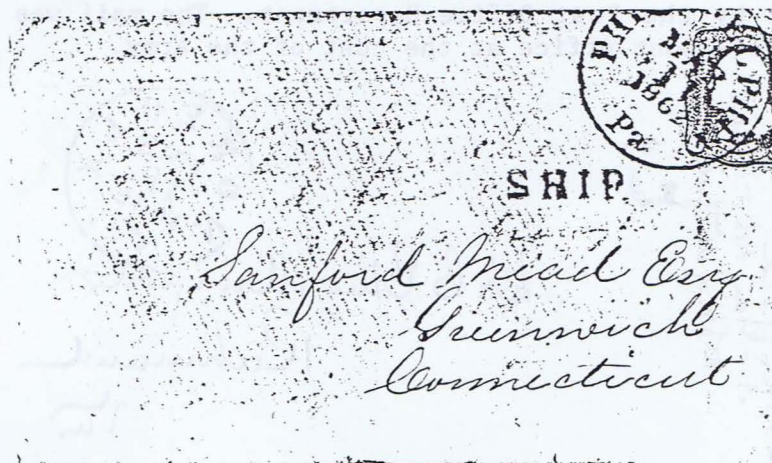 PHI
1862
Pa
PHI
SHIP
Sanford Mead Esq
Greenwich
Connecticut